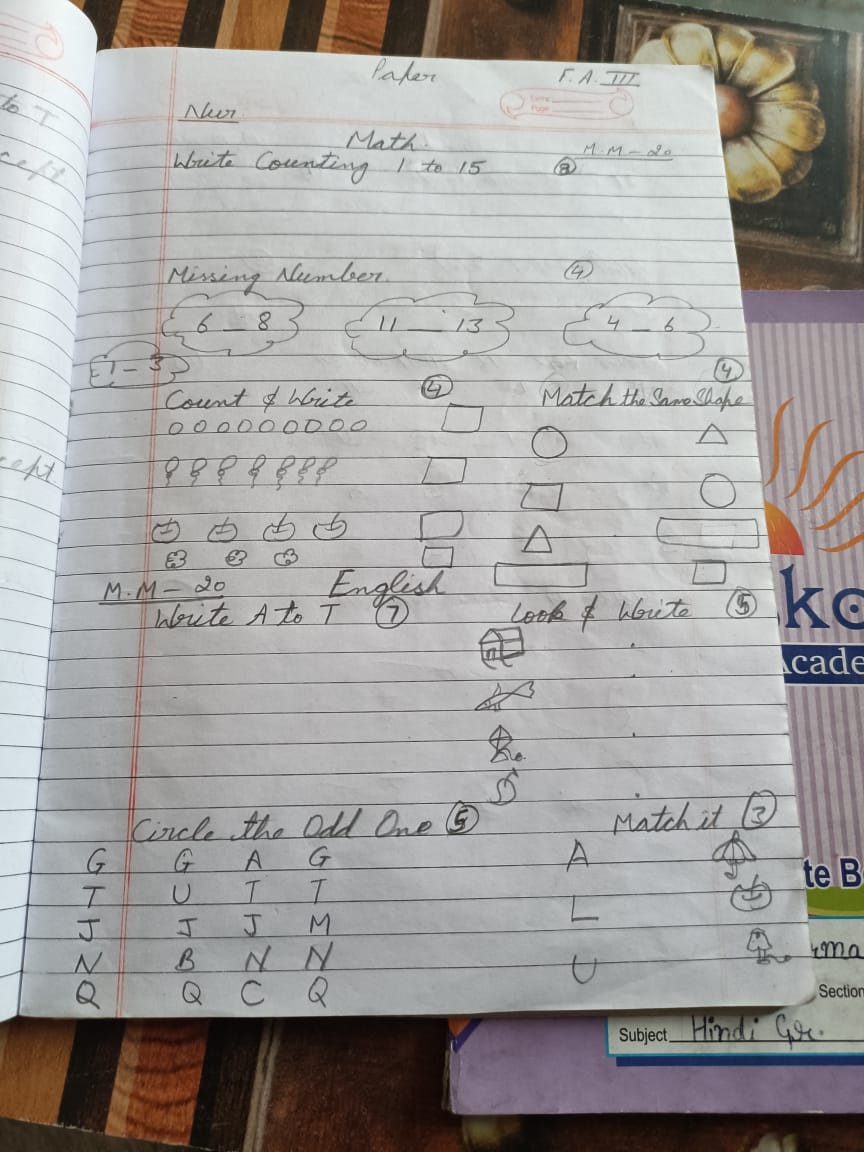 to T
Paper F.A. III
Nur.
Math.
M.M - 20
Write Counting 1 to 15
Missing Number. 4
6 _ 8 11 _ 13 4 _ 6
1 - 3
Count & Write 4 Match the Same Shape 4
M.M - 20 English
Write A to T 7 Look & Write 5
Circle the Odd One 5 Match it 3
G G A G A
T U T T L
J J J M U
N B N N
Q Q C Q
Acade
te B
rma
Section
Subject Hindi Gr.